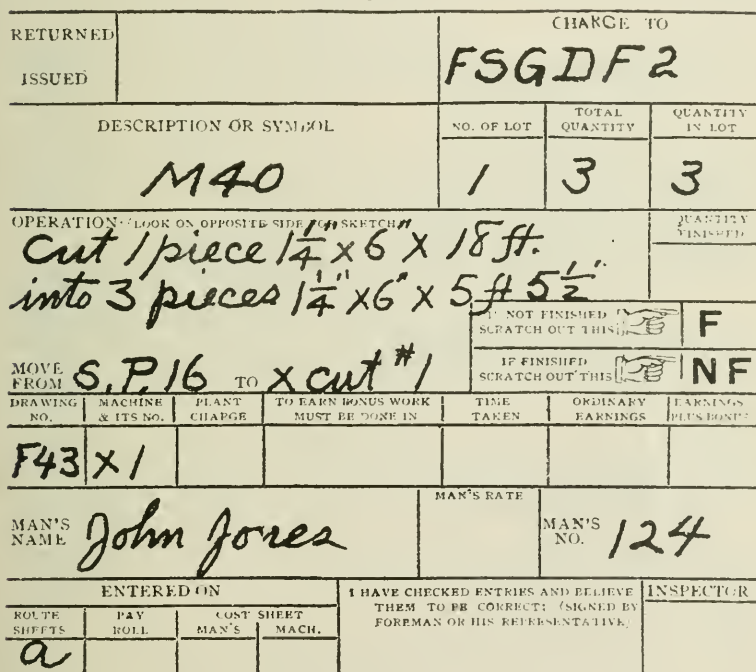 RETURNED
ISSUED
CHARGE TO
FSGDF2
DESCRIPTION OR SYMBOL
M40
NO. OF LOT
1
TOTAL QUANTITY
3
QUANTITY IN LOT
3
OPERATION (LOOK ON OPPOSITE SIDE FOR SKETCH)
Cut 1 piece 1 1/4" x 6" x 18 ft.
into 3 pieces 1 1/4" x 6" x 5 ft 5 1/2"
QUANTITY FINISHED
IF NOT FINISHED SCRATCH OUT THIS F
IF FINISHED SCRATCH OUT THIS NF
MOVE FROM S.P. 16 TO X cut #1
DRAWING NO.
MACHINE & ITS NO.
PLANT CHARGE
TO EARN BONUS WORK MUST BE DONE IN
TIME TAKEN
ORDINARY EARNINGS
EARNINGS PLUS BONUS
F43 X1
MAN'S NAME John Jones
MAN'S RATE
MAN'S NO. 124
ENTERED ON
ROUTE SHEETS
PAY ROLL
COST SHEET
MAN'S MACH.
a
I HAVE CHECKED ENTRIES AND BELIEVE
THEM TO BE CORRECT: (SIGNED BY
FOREMAN OR HIS REPRESENTATIVE)
INSPECTOR